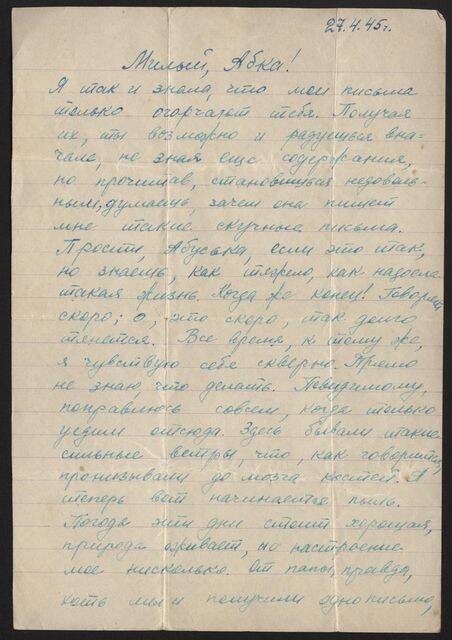 27.4.45г.
Милый, Абка!
Я так и знала, что мои письма
только огорчают тебя. Получая
их, ты возможно и радуешься вна=
чале, не зная еще содержания,
но прочитав, становишься недоволь-
ным, думаешь, зачем она пишет
мне такие скучные письма.
Прости, Абуська, если это так,
но знаешь, как тяжело, как надоела
такая жизнь. Когда же конец! Говорят
скоро; о, это скоро, так долго
тянется. Все время, к тому же,
я чувствую себя скверно. Прямо
не знаю, что делать. Повидимому,
поправлюсь совсем, когда только
уедим отсюда. Здесь бывали такие
сильные ветры, что, как говорится,
пронизывали до мозга костей. А
теперь вот начинается пыль.
Погода эти дни стоит хорошая,
природа оживает, но настроение
мое нисколько. От папы, правда,
хоть мы и получили одно письмо,